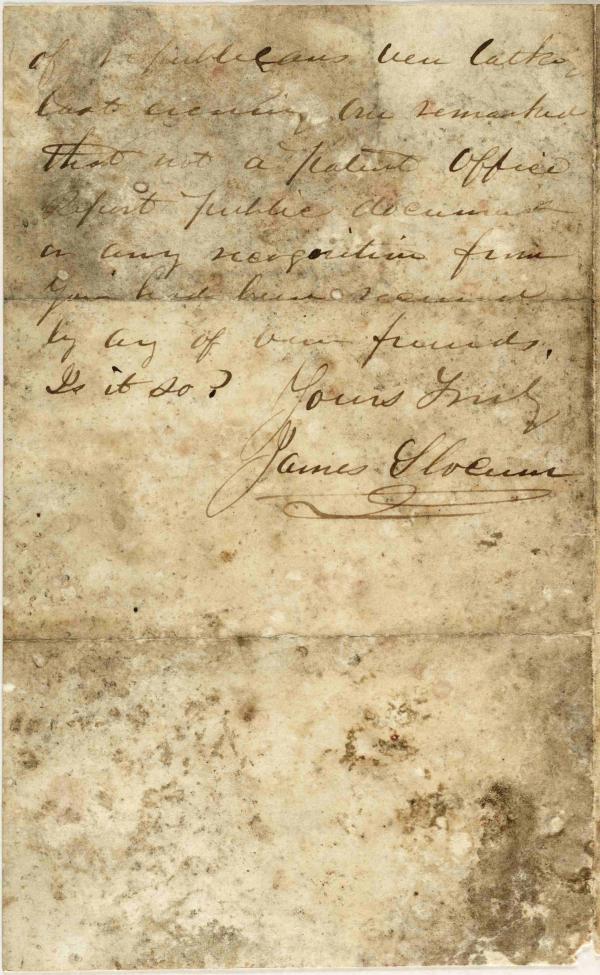 of Republicans were talking
last evening One remarked
that not a Patent Office
Report public document
or any recognition from
you had been received
by any of your friends.
Is it so? Yours Truly
James Slocum